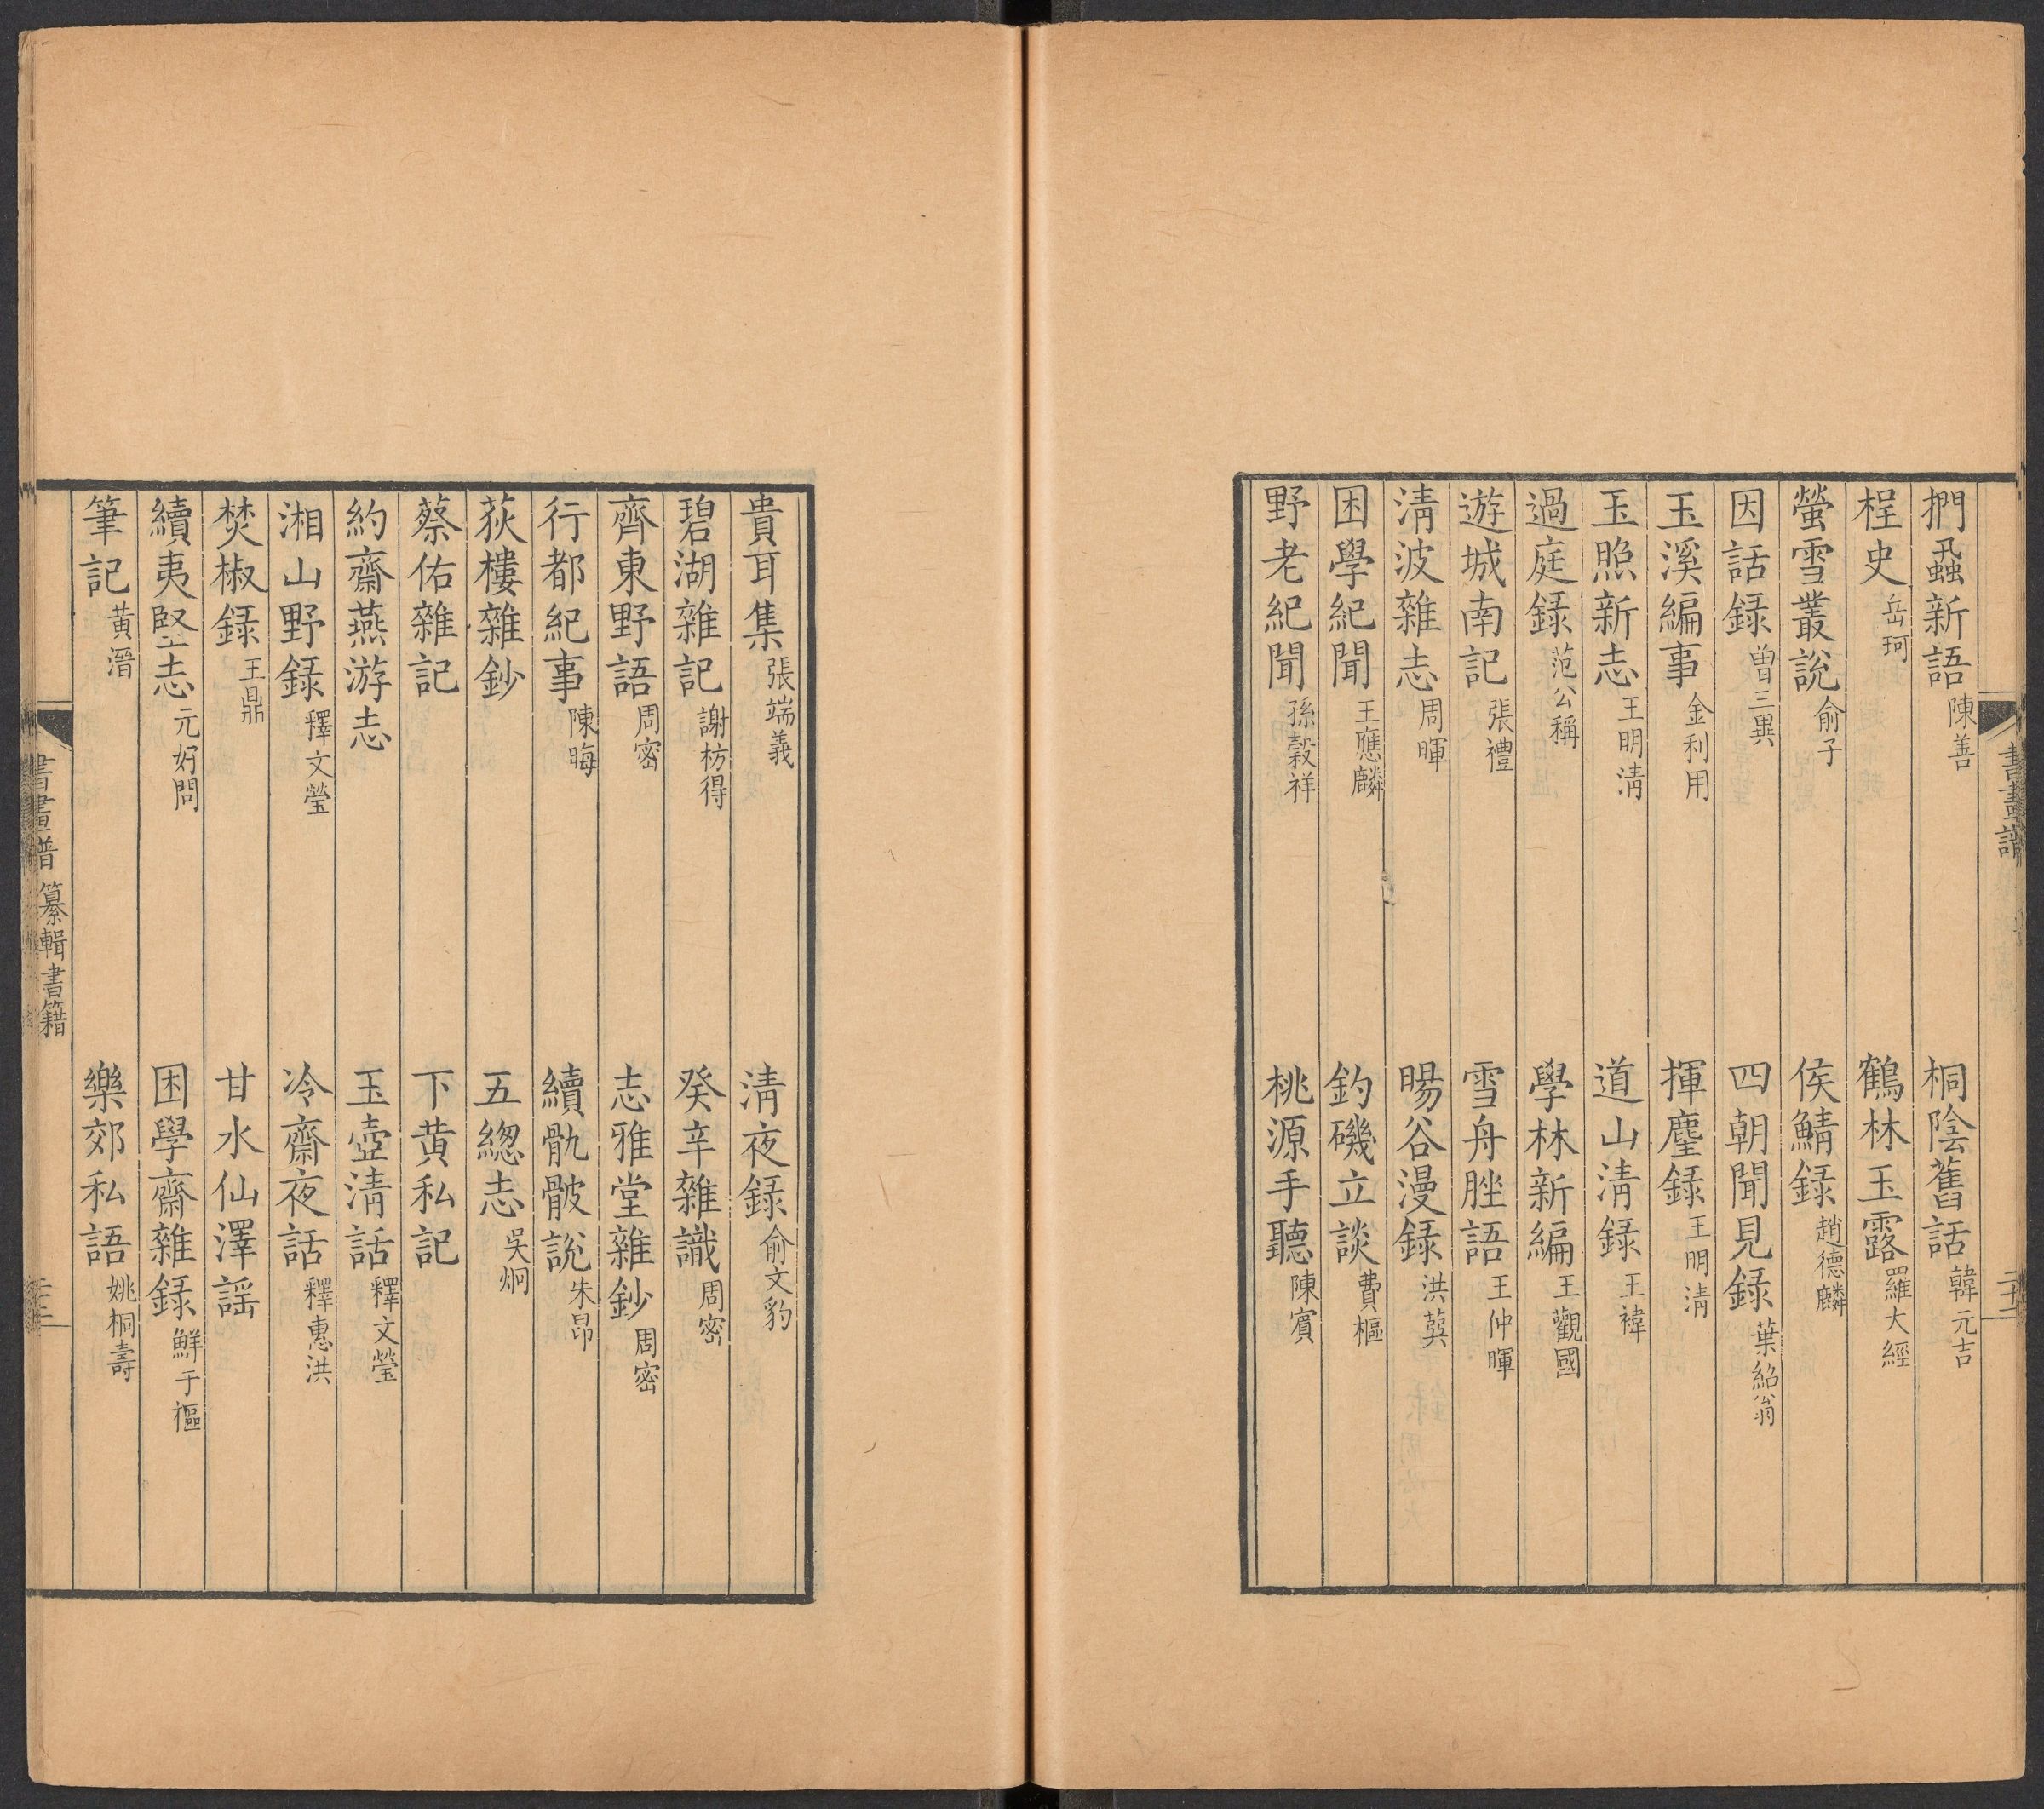 捫蝨新語 陳善 桐陰舊話 韓元吉
桯史 岳珂 鶴林玉露 羅大經
螢雪叢說 俞子 侯鯖録 趙德麟
因話録 曾三異 四朝聞見録 葉紹翁
玉溪編事 金利用 揮麈録 王明清
玉照新志 王明清 道山清録 王禕
過庭録 范公稱 學林新編 王觀國
遊城南記 張禮 雪舟脞語 王仲暉
清波雜志 周暉 暘谷漫録 洪巽
困學紀聞 王應麟 釣磯立談 費樞
野老紀聞 孫穀祥 桃源手聽 陳賓
書畫譜
貴耳集 張端義 清夜録 俞文豹
碧湖雜記 謝枋得 癸辛雜識 周密
齊東野語 周密 志雅堂雜鈔 周密
行都紀事 陳晦 續骫骳說 朱昂
荻樓雜鈔 五總志 吳炯
蔡佑雜記 下黃私記
約齋燕游志 玉壺清話 釋文瑩
湘山野録 釋文瑩 冷齋夜話 釋惠洪
焚椒録 王鼎 甘水仙澤謡
續夷堅志 元好問 困學齋雜録 鮮于樞
筆記 黃溍 樂郊私語 姚桐壽
書畫譜 纂輯書籍